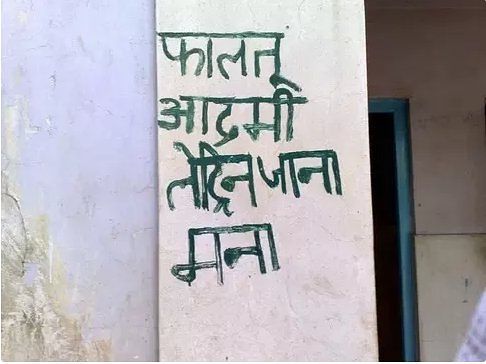 फालतू
आदमी
लेट्रिन जाना
मना